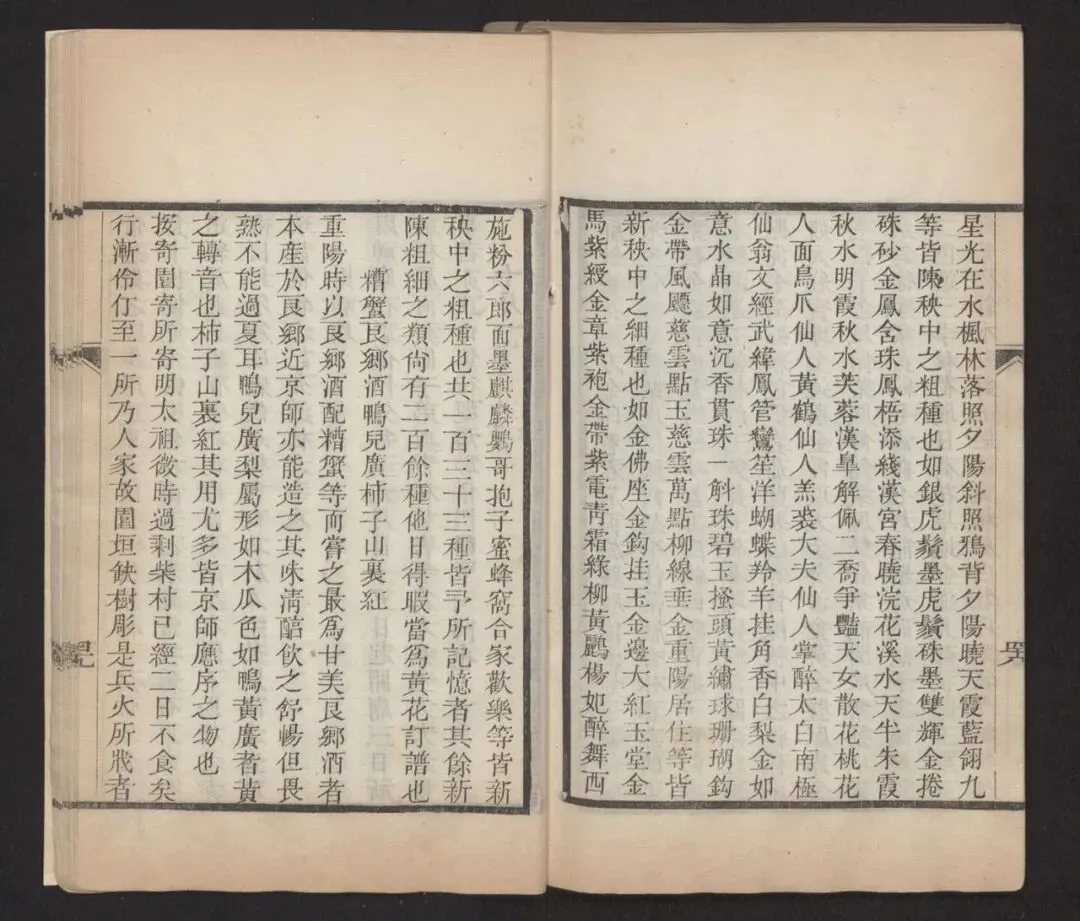 星光在水楓林落照夕陽斜照鴉背夕陽曉天霞藍翎九
等皆陳秧中之粗種也如銀虎鬚墨虎鬚硃墨雙輝金捲
硃砂金鳳含珠鳳梧添綫漢宮春曉浣花溪水天半朱霞
秋水明霞秋水芙蓉漢臯解佩二喬爭豔天女散花桃花
人面鳥爪仙人黃鶴仙人羔裘大夫仙人掌醉太白南極
仙翁文經武緯鳳管鸞笙洋蝴蝶羚羊挂角香白梨金如
意水晶如意沉香貫珠一斛珠碧玉搔頭黃繡球珊瑚鈎
金帶風飄慈雲點玉慈雲萬點柳線垂金重陽居住等皆
新秧中之細種也如金佛座金鈎挂玉金邊大紅玉堂金
馬紫綬金章紫袍金帶紫電靑霜綠柳黃鸝楊妃醉舞西
施粉六郎面墨麒麟鸚哥抱子蜜蜂窩合家歡樂等皆新
秧中之粗種也共一百三十三種皆予所記憶者其餘新
陳粗細之類尙有二百餘種他日得暇當爲黃花訂譜也
糟蟹良鄉酒鴨兒廣柿子山裏紅
重陽時以良鄉酒配糟蟹等而嘗之最爲甘美良鄉酒者
本產於良鄉近京師亦能造之其味淸醕飮之舒暢但畏
熟不能過夏耳鴨兒廣梨屬形如木瓜色如鴨黃廣者黃
之轉音也柿子山裏紅其用尤多皆京師應序之物也
按寄園寄所寄明太祖微時過剩柴村已經二日不食矣
行漸伶仃至一所乃人家故園垣缺樹彫是兵火所戕者